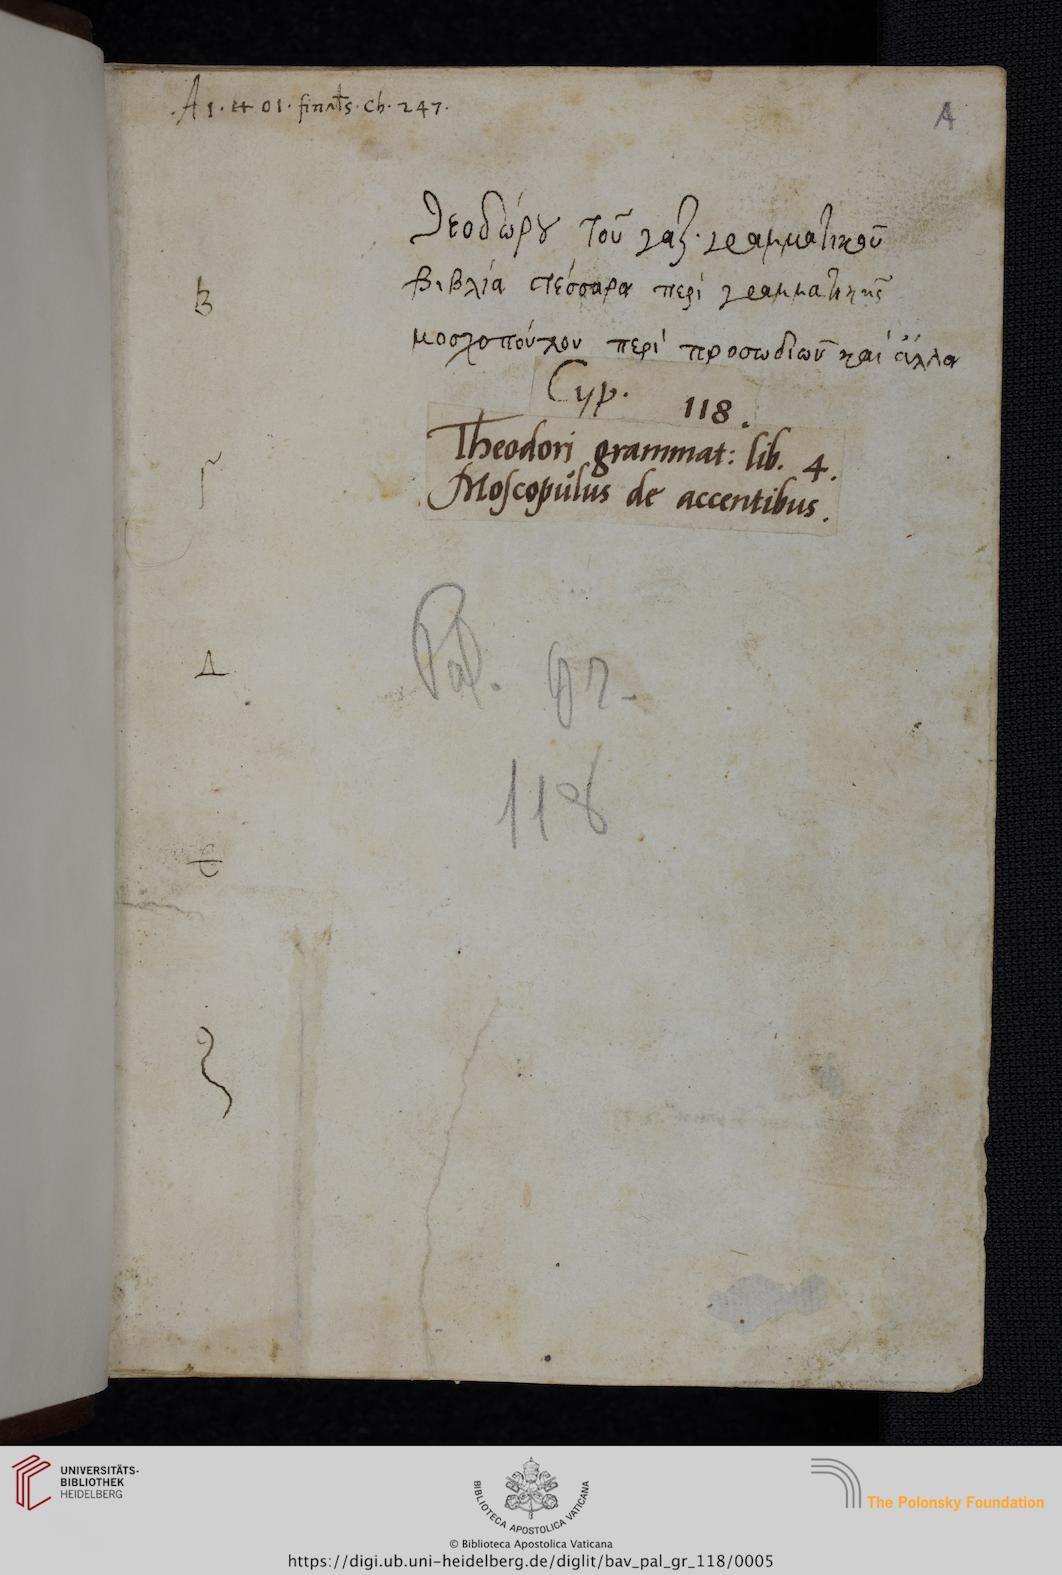 A
Θεοδώρου τοῦ γαζ. γραμματικοῦ
βιβλία τέσσαρα περὶ γραμματικῆς
B
μοσχοπούλου περὶ προσωδιῶν καὶ ἄλλα
Cyp. 118.
Theodori grammat: lib. 4.
Moscopulus de accentibus.
Γ
Δ
Pal. gr.
118
Ε
UNIVERSITÄTS-
BIBLIOTHEK
HEIDELBERG
BIBLIOTECA APOSTOLICA VATICANA
The Polonsky Foundation
© Biblioteca Apostolica Vaticana
https://digi.ub.uni-heidelberg.de/diglit/bav_pal_gr_118/0005